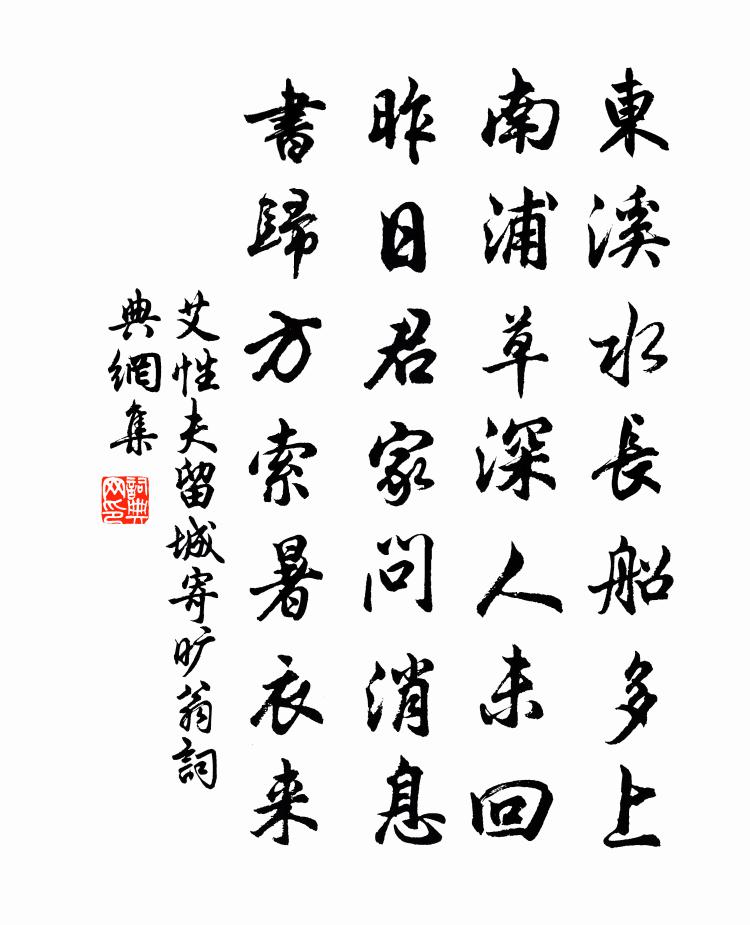 東溪水長船多上
南浦草深人未回
昨日君家問消息
書歸方索暑衣来
艾性夫留城寄旷翁詞
典網集
詞典
网印